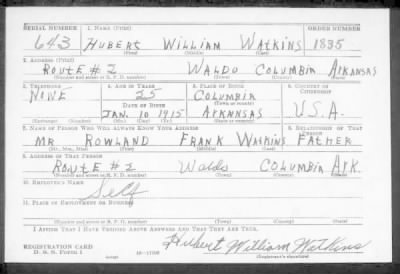 SERIAL NUMBER 1. NAME (Print) ORDER NUMBER
643 HUBERT WILLIAM WATKINS 1835
(First) (Middle) (Last)
2. ADDRESS (Print)
ROUTE # 2 WALDO COLUMBIA ARKANSAS
(Number and street or R. F. D. number) (Town) (County) (State)
3. TELEPHONE 4. AGE IN YEARS 5. PLACE OF BIRTH 6. COUNTRY OF CITIZENSHIP
NONE 25 COLUMBIA
DATE OF BIRTH (Town or county)
JAN. 10 1915 ARKANSAS U.S.A.
(Exchange) (Number) (Mo.) (Day) (Yr.) (State or country)
7. NAME OF PERSON WHO WILL ALWAYS KNOW YOUR ADDRESS 8. RELATIONSHIP OF THAT PERSON
MR ROWLAND FRANK WATKINS FATHER
(Mr., Mrs., Miss) (First) (Middle) (Last)
9. ADDRESS OF THAT PERSON
ROUTE # 2 Waldo COLUMBIA ARK.
(Number and street or R. F. D. number) (Town) (County) (State)
10. EMPLOYER'S NAME
Self
11. PLACE OF EMPLOYMENT OR BUSINESS
(Number and street or R. F. D. number) (Town) (County) (State)
I AFFIRM THAT I HAVE VERIFIED ABOVE ANSWERS AND THAT THEY ARE TRUE.
REGISTRATION CARD
D. S. S. Form 1
Hubert William Watkins
(Registrant's signature)